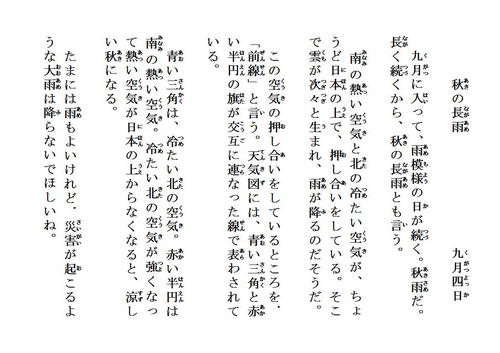 秋の長雨　九月四日
九月に入って、雨模様の日が続く。秋雨だ。
長く続くから、秋の長雨とも言う。
南の熱い空気と北の冷たい空気が、ちょ
うど日本の上で、押し合いをしている。そこ
で雲が次々と生まれ、雨が降るのだそうだ。
この空気の押し合いをしているところを、
「前線」と言う。天気図には、青い三角と赤
い半円の旗が交互に連なった線で表わされて
いる。
青い三角は、冷たい北の空気。赤い半円は
南の熱い空気。冷たい北の空気が強くなっ
て熱い空気が日本の上からなくなると、涼し
い秋になる。
たまには雨もよいけれど、災害が起こるよ
うな大雨は降らないでほしいね。